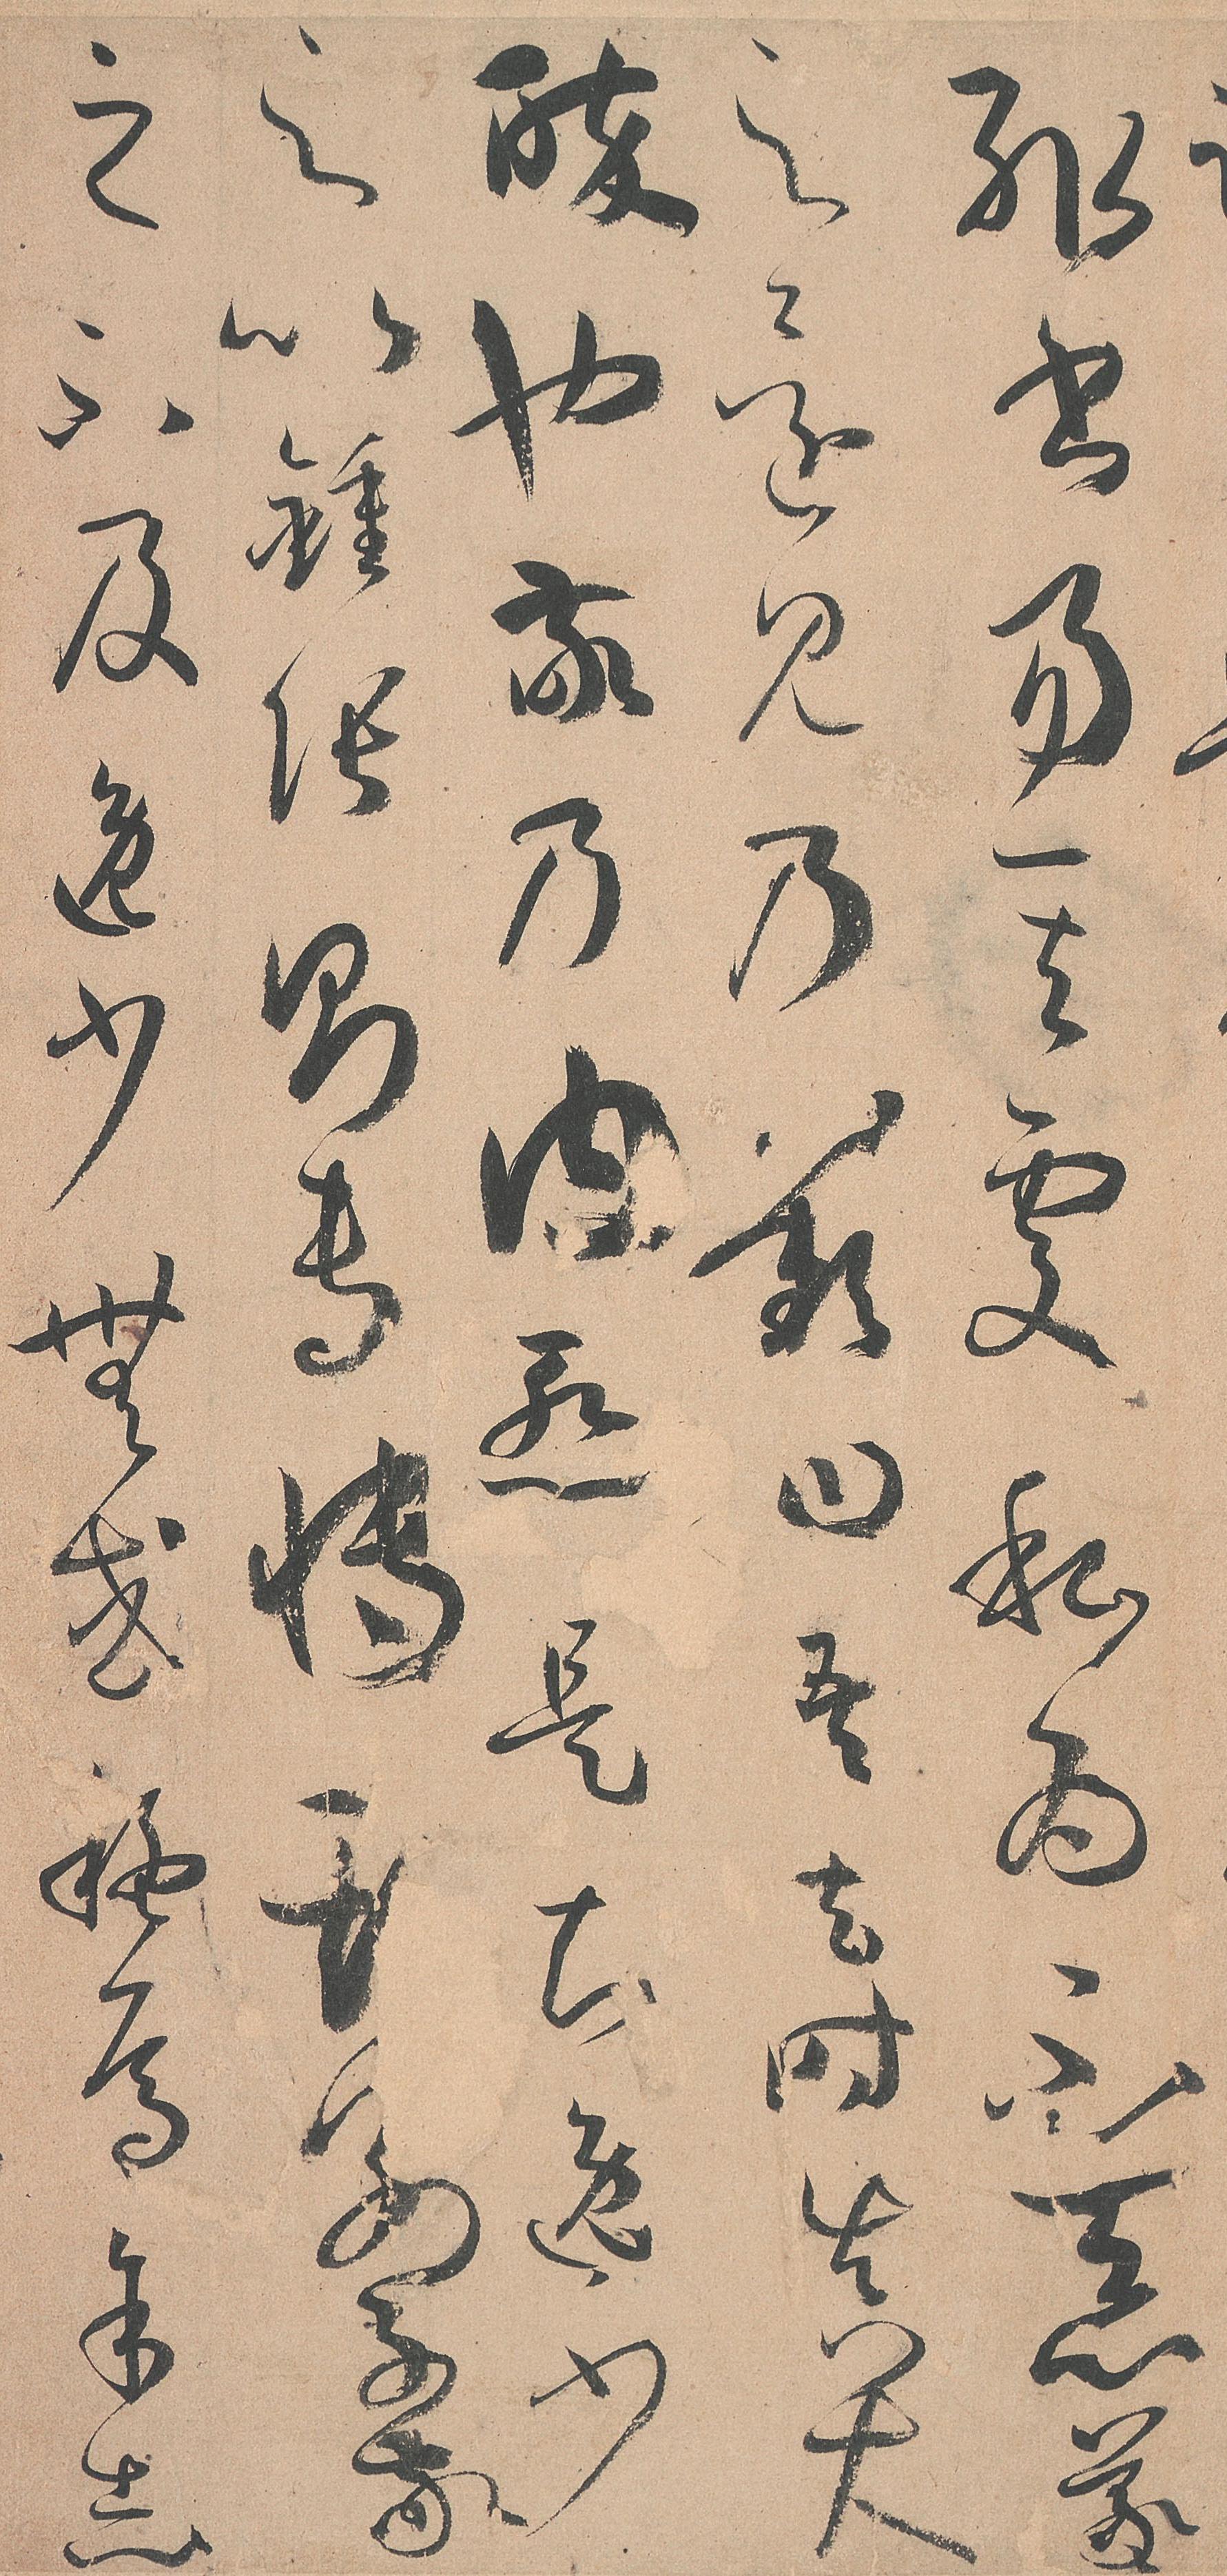 輒書易其處私為不惡羲
之還見乃歎曰吾去時真大
醉也敬乃內慙是知逸少
之比鍾張則專博斯別子敬
之不及逸少無或疑焉余志